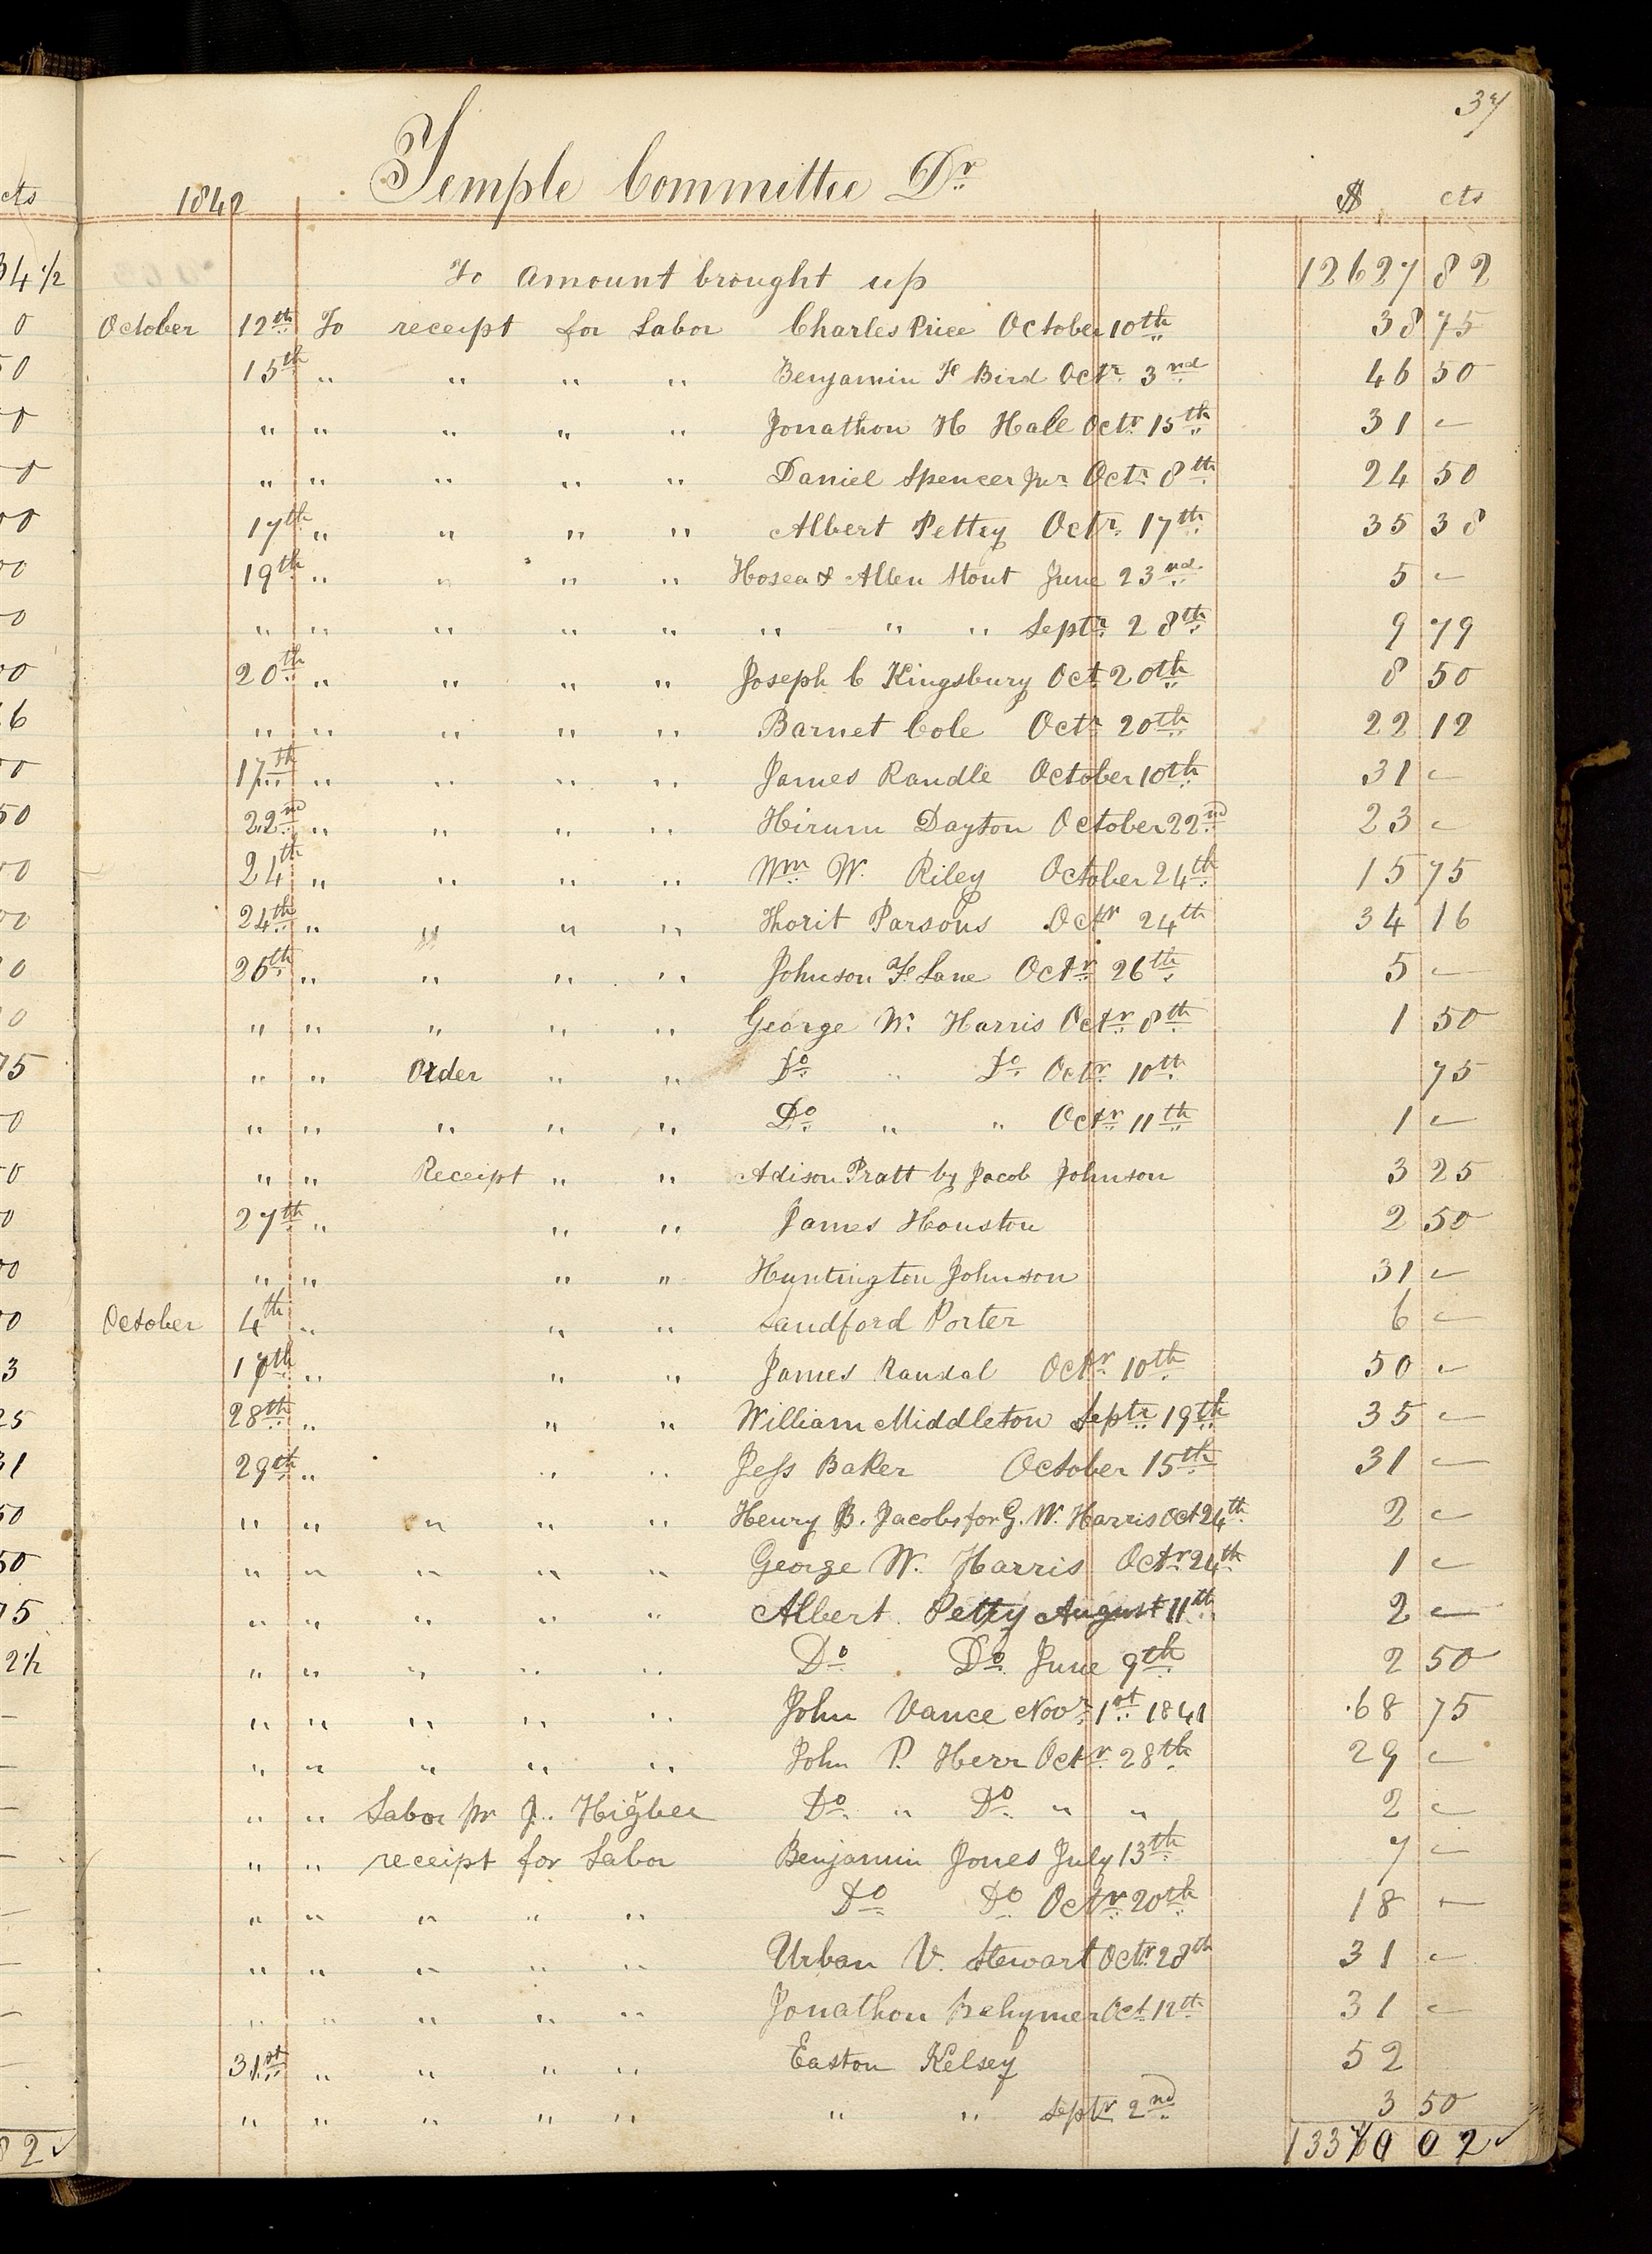 37
1842 Temple Committee Dr $ cts
To amount brought up 12627 82
October 12th To receipt for Labor Charles Price October 10th 38 75
15th " " " " Benjamin F Bird Octr 3nd 46 50
" " " " " Jonathon H Hale Octr 15th 31 -
" " " " " Daniel Spencer Jur Octr 8th 24 50
17th " " " " Albert Pettey Octr 17th 35 38
19th " " " " Hosea & Allen Stout June 23nd 5 -
" " " " " " " " Septr 28th 9 79
20th " " " " Joseph C Kingsbury Oct 20th 8 50
" " " " " Barnet Cole Octr 20th 22 12
17th " " " " James Randle October 10th 31 -
22nd " " " " Hirum Dayton October 22nd 23 -
24th " " " " Wm W. Riley October 24th 15 75
24th " " " " Thorit Parsons Octr 24th 34 16
26th " " " " Johnson F Lane Octr 26th 5 -
" " " " " George W. Harris Octr 8th 1 50
" " Order " " Do " Do Octr 10th 75
" " " " " Do " " Octr 11th 1 -
" " Receipt " " Adison Pratt by Jacob Johnson 3 25
27th " " " James Houston 2 50
" " " " Huntington Johnson 31 -
October 4th " " " Sandford Porter 6 -
17th " " " James Randal Octr 10th 50 -
28th " " " William Middleton Septr 19th 35 -
29th " " " Jess Baker October 15th 31 -
" " " " " Henry B. Jacobs for G. W. Harris Oct 24th 2 -
" " " " " George W. Harris Octr 24th 1 -
" " " " " Albert Petty August 11th 2 -
" " " " " Do Do June 9th 2 50
" " " " " John Vance Novr 1st 1841 68 75
" " " " " John P. Herr Octr 28th 29 -
" " Labor pr J. Higbee Do " Do " " 2 -
" " receipt for Labor Benjamin Jones July 13th 7 -
" " " " " Do Do Octr 20th 18 -
" " " " " Urban V. Stewart Octr 28th 31 -
" " " " " Jonathon Behymer Oct 12th 31 -
31st " " " " Easton Kelsey 52
" " " " " " " Septr 2nd 3 50
02